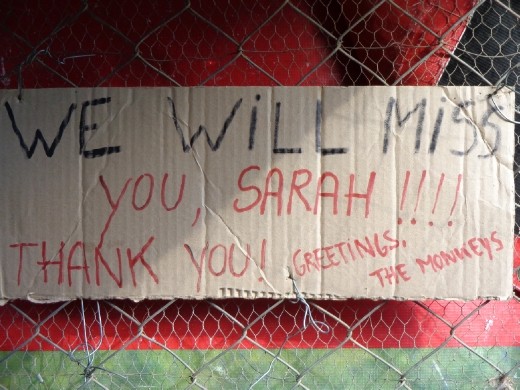 WE WiLL MiSS
YOU, SARAH !!!!
THANK YOU! GREETINGS,
THE MONKEYS